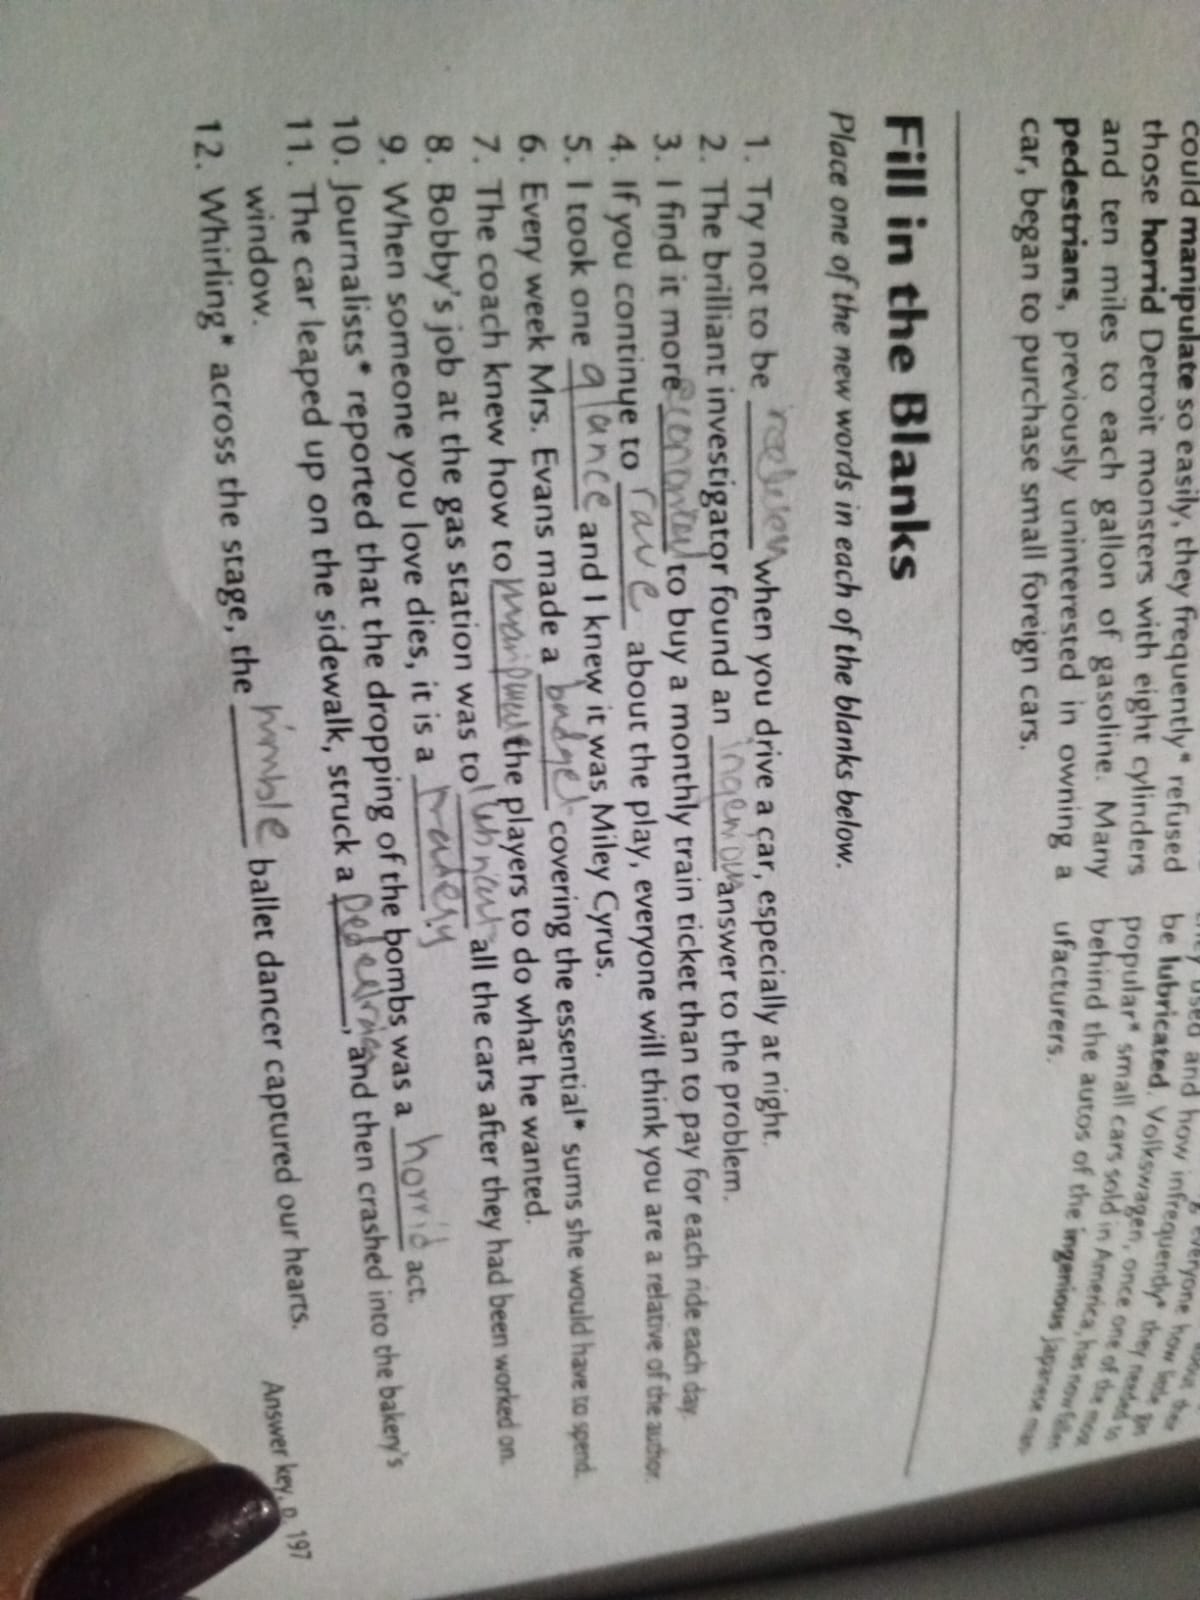 could manipulate so easily, they frequently* refused
those horrid Detroit monsters with eight cylinders
and ten miles to each gallon of gasoline. Many
pedestrians, previously uninterested in owning a
car, began to purchase small foreign cars.
everyone how little
used and how infrequently* they needed to
be lubricated. Volkswagen, once one of the most
popular* small cars sold in America, has now fallen
behind the autos of the ingenious Japanese man-
ufacturers.
Fill in the Blanks
Place one of the new words in each of the blanks below.
1. Try not to be when you drive a car, especially at night.
2. The brilliant investigator found an ingenious answer to the problem.
3. I find it more to buy a monthly train ticket than to pay for each ride each day.
4. If you continue to rave about the play, everyone will think you are a relative of the author.
5. I took one glance and I knew it was Miley Cyrus.
6. Every week Mrs. Evans made a budget covering the essential* sums she would have to spend.
7. The coach knew how to the players to do what he wanted.
8. Bobby's job at the gas station was to all the cars after they had been worked on.
9. When someone you love dies, it is a
10. Journalists* reported that the dropping of the bombs was a horrid act.
11. The car leaped up on the sidewalk, struck a , and then crashed into the bakery's
window.
12. Whirling* across the stage, the ballet dancer captured our hearts.
Answer key, p. 197